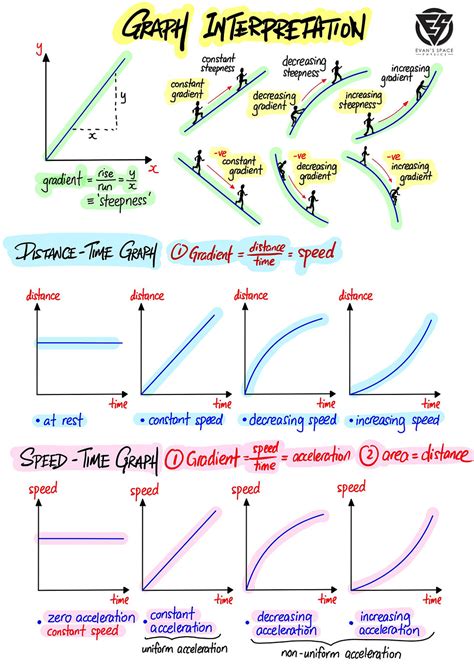 GRAPH INTERPRETATION
ES
EVAN'S SPACE
PHYSICS
y
x
y
x
gradient = rise/run = y/x
≡ 'steepness'
constant
steepness
constant
gradient
decreasing
steepness
decreasing
gradient
increasing
gradient
increasing
steepness
-ve
constant
gradient
-ve
decreasing
gradient
-ve
increasing
gradient
DISTANCE-TIME GRAPH ① Gradient = distance/time = speed
distance distance distance distance
time time time time
• at rest • constant speed • decreasing speed • increasing speed
SPEED-TIME GRAPH ① Gradient = speed/time = acceleration ② area = distance
speed speed speed speed
time time time time
• zero acceleration • constant • decreasing • increasing
constant speed acceleration acceleration acceleration
uniform acceleration non-uniform acceleration